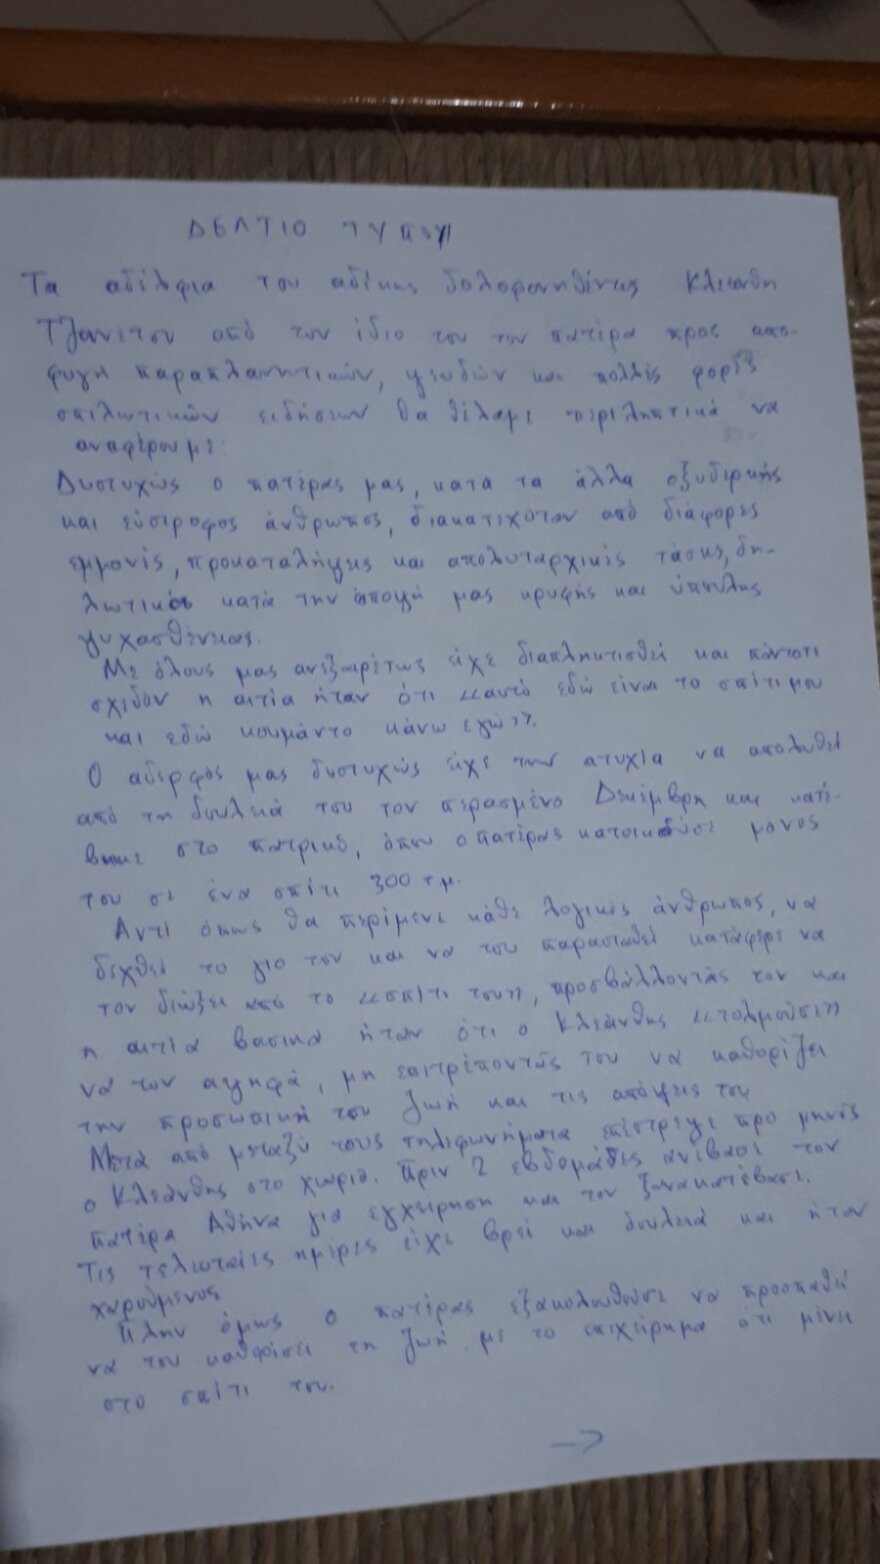 ΔΕΛΤΙΟ ΤΥΠΟΥ
Τα αδέλφια του αδίκως δολοφονηθέντως Κλεάνθη
Τζανετου από τον ίδιο του τον πατέρα προς απο-
φυγή παραπλανητικών, ψευδών και πολλές φορές
σπιλωτικών ειδήσεων θα θέλαμε περιληπτικά να
αναφέρουμε:
Δυστυχώς ο πατέρας μας, κατα τα άλλα οξυδερκής
και εύστροφος άνθρωπος, διακατεχόταν από διάφορες
εμμονές, προκαταλήψεις και απολυταρχικές τάσεις, δη-
λωτικές κατά την άποψή μας κρυφής και ύπουλης
ψυχασθένειας.
Με όλους μας ανεξαιρέτως είχε διαπληκτισθεί και πάντοτε
σχεδόν η αιτία ήταν ότι «αυτό εδώ είναι το σπίτι μου
και εδώ κουμάντο κάνω εγώ».
Ο αδερφός μας δυστυχώς είχε την ατυχία να απολυθεί
από τη δουλειά του τον περασμένο Δεκέμβρη και κατέ-
βηκε στο πατρικό, όπου ο πατέρας κατοικούσε μόνος
του σε ένα σπίτι 300 τ.μ.
Αντί όπως θα περίμενε κάθε λογικός άνθρωπος, να
δεχθεί το γιο του και να του παρασταθεί κατάφερε να
τον διώξει από το «σπίτι του», προσβάλλοντάς τον και
η αιτία βασικά ήταν ότι ο Κλεάνθης «τολμούσε»
να τον αψηφά, μη επιτρέποντάς του να καθορίζει
την προσωπική του ζωή και τις απόψεις του
Μετά από μεταξύ τους τηλεφωνήματα επέστρεψε προ μηνός
ο Κλεάνθης στο χωριό. Πριν 2 εβδομάδες ανέβασε τον
πατέρα Αθήνα για εγχείρηση και τον ξανακατέβασε.
Τις τελευταίες ημέρες είχε βρεί και δουλειά και ήταν
χαρούμενος
Πλην όμως ο πατέρας εξακολουθούσε να προσπαθεί
να του καθορίσει τη ζωή με το επιχείρημα ότι μένει
στο σπίτι του.
→